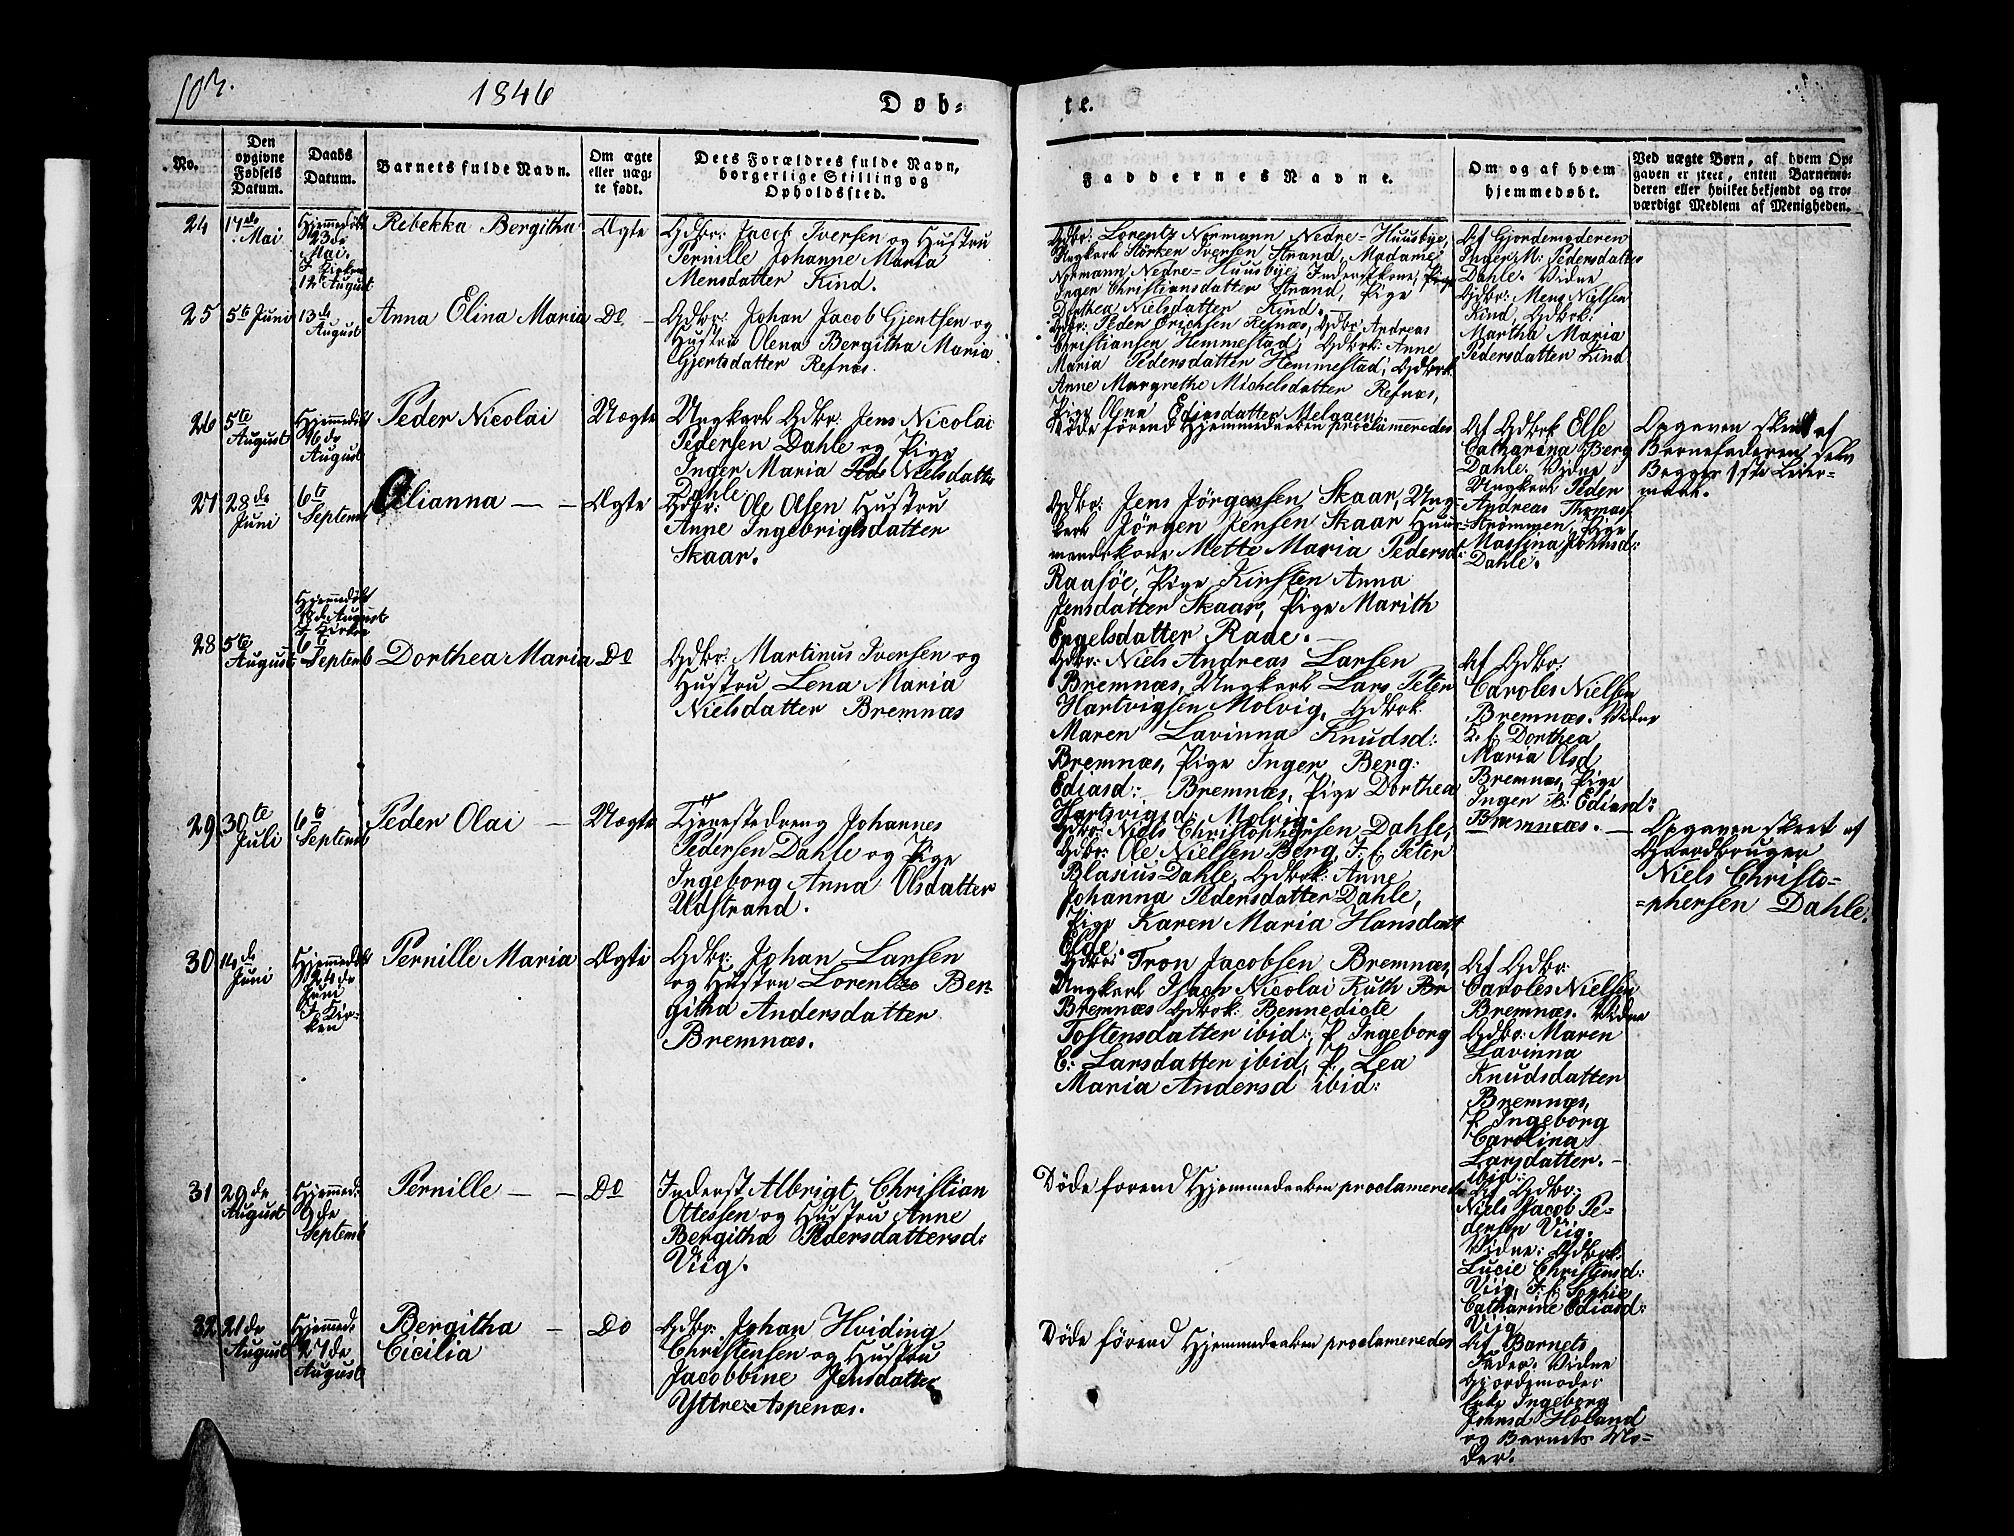 103.
1846
Døb-
te.
No.
Den
opgivne
Fødsels
Datum.
Daabs
Datum.
Barnets fulde Navn.
Om ægte
eller uæg-
te født.
Dets Forældres fulde Navn,
borgerlige Stilling og
Opholdssted.
Faddernes Navne.
Om og af hvem
hjemmedøbt.
Ved uægte Børn, af hvem Op-
gaven er skeet, enten Barnemo-
deren eller hvilket bekjendt og tro-
værdigt Medlem af Menigheden.
24
17de
Mai
Hjemmedøbt
23de
Mai.
I Kirken
12te August
Rebekka Bergitha
Ægte
Gdbr: Jacob Iversen og Hustru
Pernille Johanne Maria
Mensdatter Kind.
Gdbr: Lorentz Normann Nedre-Huusbye,
Ungkarl Størker Iversen Strand, Madame
Normann Nedre-Huusbye, Inderstkone
Inger Christiansdatter Strand, Pige
Dorthea Nielsdatter Kind.
Af Gjordemoderen
Inger M: Pedersdatter
Dahle. Vidne
Gdbr: Mens Nielsen
Kind, Gdbrk:
Martha Maria
Pedersdatter Kind
25
5te Juni
13de
August
Anna Elina Maria
Do
Gdbr: Johan Jacob Gjertsen og
Hustru Olena Bergitha Maria
Gjertsdatter Refnæs.
Gdbr: Peder Erichsen Refnæs, Gdbr Andreas
Christiansen Hemmestad, Gdbrk: Anne
Maria Pedersdatter Hemmestad, Gdbrk
Anne Margrethe Michelsdatter Refnæs,
Pige Olina Ediasdatter Melaaen.
26
5te
August
Hjemmedøbt
16de
August
Peder Nicolai
Uægte
Ungkarl Gdbr: Jens Nicolai
Pedersen Dahle og Pige
Inger Maria Nielsdatter
Dahle
Døde førend Hjemmedaaben proclameredes
Af Gdbrk Else
Catharina Berg
Dahle. Vidne
Ungkarl Peder
Andreas Thomass
Strømmen, Pige
Massina Johnsd:
Dahle.
Opgaven skeet af
Barnefaderen selv
Begges 1ste Leier-
maal.
27
28de
Juni
6te
Septemb
Elianna
Ægte
Gdbr: Ole Olsen Hustru
Anne Ingebrigtsdatter
Skaar.
Gdbr: Jens Jörgensen Skaar, Ung-
karl Jörgen Jensen Skaar Huus-
mandskone Mette Maria Pedersd:
Raasöe, Pige Kirsten Anna
Jensdatter Skaar, Pige Marith
Engelsdatter Rade.
28
5te
August
Hjemmedøbt
I Kirken
6te
Septemb
Dorthea Maria
Do
Gdbr: Martinus Iversen og
Hustru Lena Maria
Nielsdatter Bremnæs
Gdbr: Niels Andreas Larsen
Bremnæs, Ungkarl Lars Peter
Hartvigsen Molvig, Gdbrk
Maren Lavinna Knudsd:
Bremnæs, Pige Inger Berg:
Ediasd: Bremnæs, Pige Dorthea
Hartsvigsd: Molvig.
Af Gdbr:
Caroles Nielsen
Bremnæs. Vidne
Dorthea
Maria Olsd
Bremnæs, Pige
Inger B: Ediasd:
Bremnæs.
29
30te
Juli
6te
Septemb
Peder Olai
Uægte
Tjenestedreng Johannes
Pedersen Dahle og Pige
Ingeborg Anna Olsdatter
Udstrand.
Gdbr: Niels Christophersen Dahle,
Gdbr: Ole Nielsen Berg, J. f. Peter
Blasius Dahle, Gdbrk: Anne
Johanna Pedersdatter Dahle,
Pige Karen Maria Hansdatt
Elde.
Opgaven skeet af
Gaardbruger
Niels Christo-
-phersen Dahle.
30
14de
Juni
Hjemmedøbt
24de
Juni
I Kir-
ken
Pernille Maria
Ægte
Gdbr: Johan Larsen
og Hustru Lorentze Ber-
githa Andersdatter
Bremnæs.
Gdbr: Tron Jacobsen Bremnæs,
Ungkarl Isach Nicolai Ruth Br
Bremnæs Gdbrk: Bennedicte
Tostensdatter ibid:, P. Ingeborg
C: Larsdatter ibid, P. Lea
Maria Andersd ibid:
Af Gdbr:
Caroles Nielsen
Bremnæs. Vidne
Gdbr: Maren
Lavinna
Knudsdatter
Bremnæs,
P. Ingeborg
Carolina
Larsdatter.
ibid:
31
29de
August
Hjemmed:
2de
Septemb
Pernille
Do
Inderst Albrigt Christian
Ottessen og Hustru Anne
Bergitha Pedersdattersd:
Viig.
Døde forend Hjemmedaaben proclameredes
Af Gdbr:
Niels Jacob Pe-
dersen Viig.
Vidne: Gdbrk:
Lucie Christensd:
Viig, J. f. Sophie
Catharine Ediasd:
Viig
32
21de
August
Hjemmed:
27de
August
Bergitha
Cicilia
Do
Gdbr: Johan Hviding
Christensen og Hustru
Jacobbine Jensdatter
Yttre-Aspenæs.
Døde førend Hjemmedaaben proclameredes
Af Barnets
Fader. Vidne
Gjordemoder
Enke Ingeborg
Johnsd Holand
og Barnets Mo-
der.